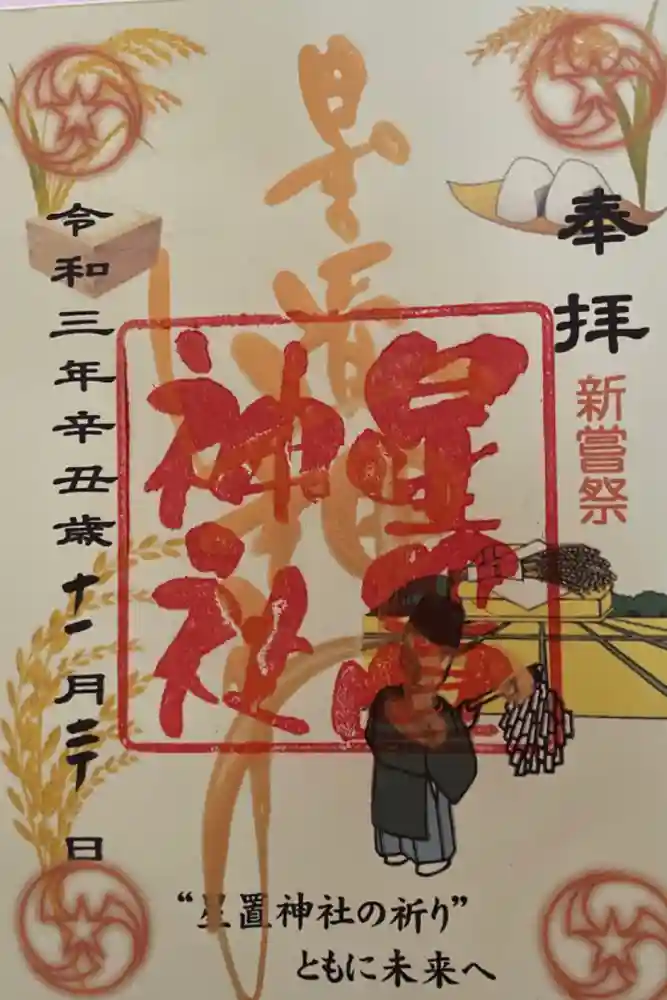 奉拝
新嘗祭
星置神社
星置
神社
令和三年辛丑歳十一月 日
“星置神社の祈り”
ともに未来へ